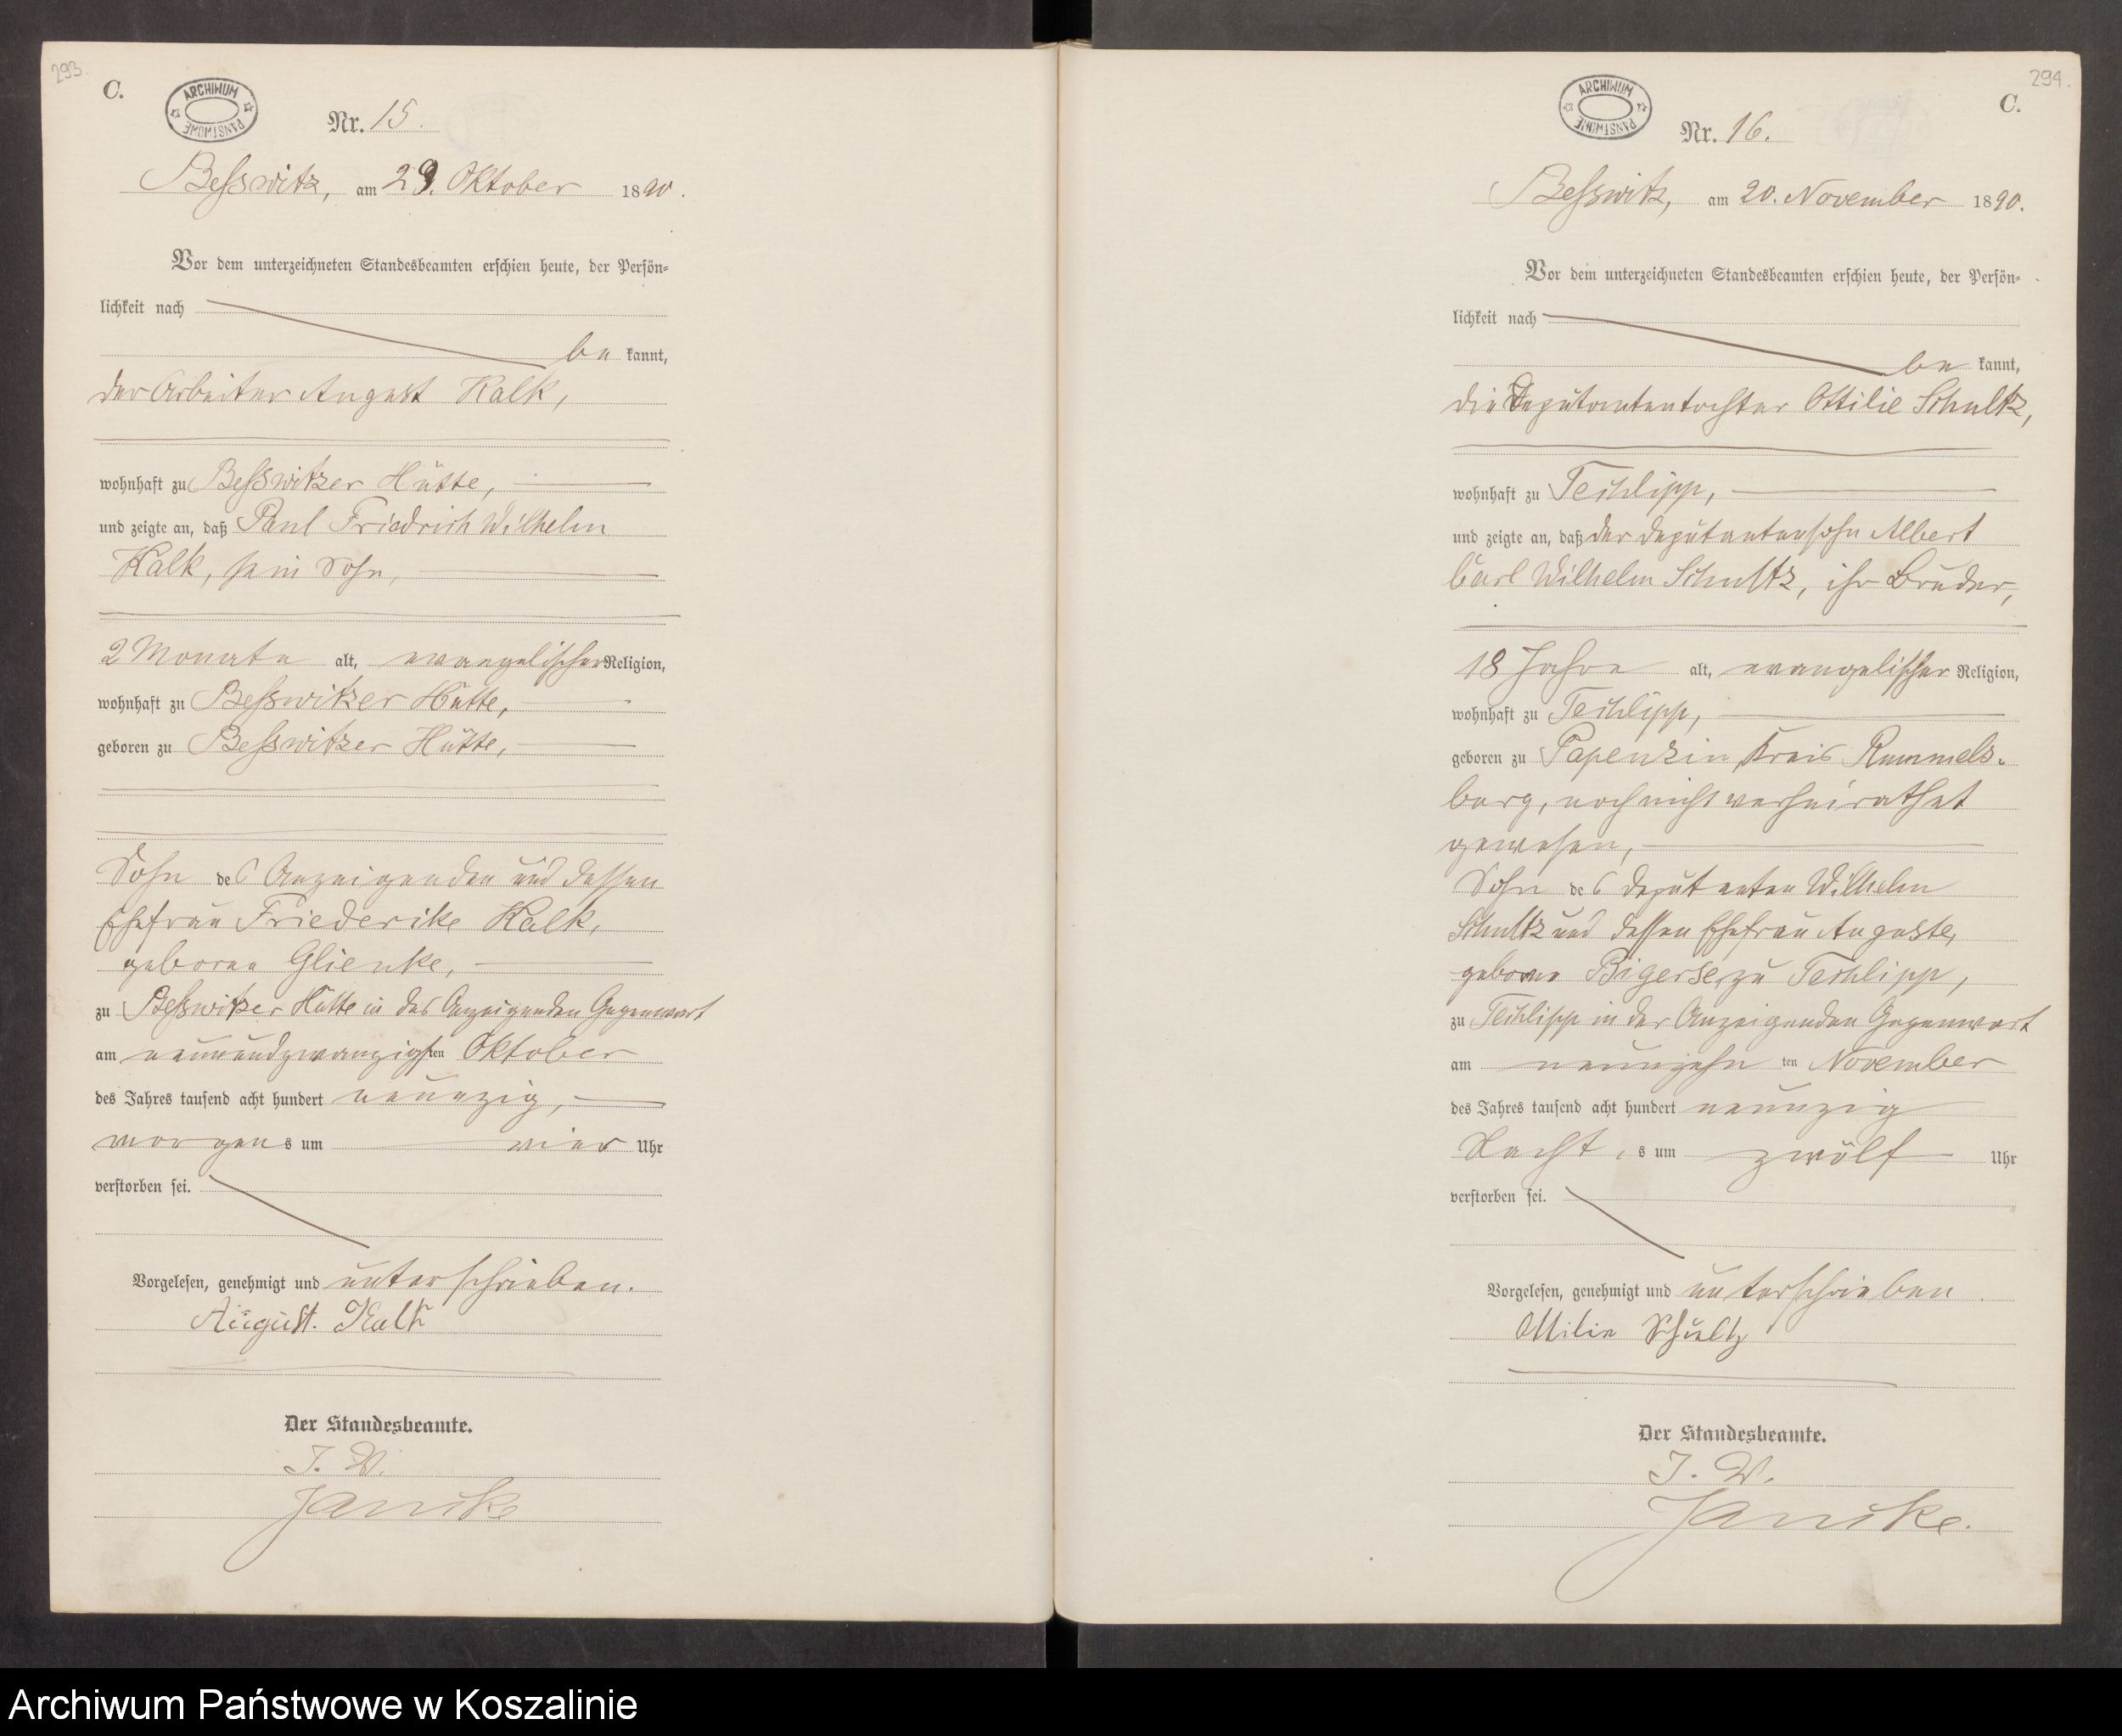 293.
C.
ARCHIWUM PAŃSTWOWE
Nr. 15.
Beßwitz, am 29. Oktober 1890.
Vor dem unterzeichneten Standesbeamten erschien heute, der Persön-
lichkeit nach
be kannt,
der Arbeiter August Kalk,
wohnhaft zu Beßwitzer Hütte,
und zeigte an, daß Paul Friedrich Wilhelm
Kalk, sein Sohn,
2 Monate alt, evangelischer Religion,
wohnhaft zu Beßwitzer Hütte,
geboren zu Beßwitzer Hütte,
Sohn des Anzeigenden und dessen
Ehefrau Friederike Kalk,
geborne Glienke,
zu Beßwitzer Hütte in des Anzeigenden Gegenwart
am neunundzwanzigsten Oktober
des Jahres tausend acht hundert neunzig,
morgens um vier Uhr
verstorben sei.
Vorgelesen, genehmigt und unterschrieben.
August. Kalk
Der Standesbeamte.
I. V.
Janicke
294.
C.
ARCHIWUM PAŃSTWOWE
Nr. 16.
Beßwitz, am 20. November 1890.
Vor dem unterzeichneten Standesbeamten erschien heute, der Persön-
lichkeit nach
be kannt,
die Deputantentochter Ottilie Schultz,
wohnhaft zu Techlipp,
und zeigte an, daß der Deputantensohn Albert
Carl Wilhelm Schultz, ihr Bruder,
18 Jahre alt, evangelischer Religion,
wohnhaft zu Techlipp,
geboren zu Papenzin Kreis Rummels-
burg, noch nicht verheirathet
gewesen,
Sohn des Deputanten Wilhelm
Schultz und dessen Ehefrau Auguste,
geborne zu Techlipp,
zu Techlipp in der Anzeigenden Gegenwart
am neunzehn ten November
des Jahres tausend acht hundert neunzig
Nacht, s um zwölf Uhr
verstorben sei.
Vorgelesen, genehmigt und unterschrieben
Ottilie Schultz
Der Standesbeamte.
I. V.
Janicke.
Archiwum Państwowe w Koszalinie